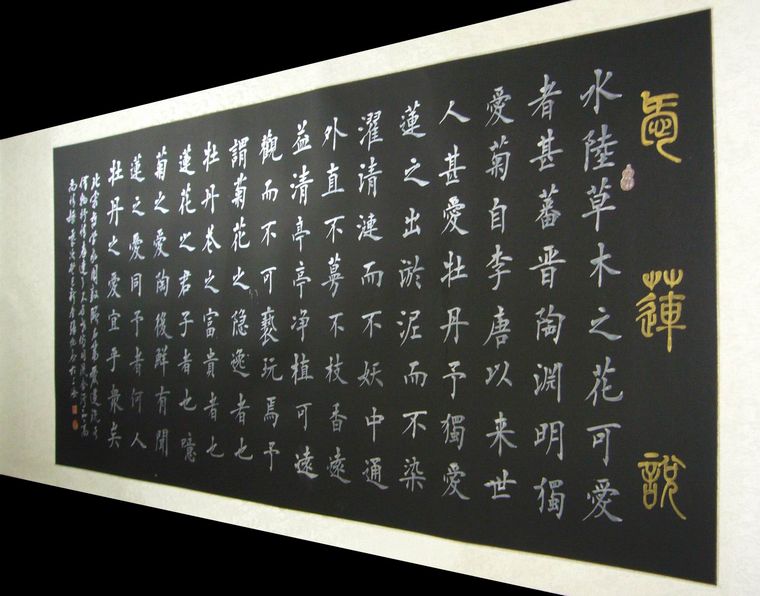 㤅蓮說
水陸草木之花可愛
者甚蕃晋陶淵明獨
愛菊自李唐以来世
人甚愛牡丹予獨愛
蓮之出淤泥而不染
濯清漣而不妖中通
外直不蔓不枝香遠
益清亭亭净植可遠
觀而不可褻玩焉予
謂菊花之隐逸者也
牡丹花之富貴者也
蓮花之君子者也噫
菊之愛陶後鮮有聞
蓮之愛同予者何人
牡丹之愛宜乎衆矣
北宋哲學家周敦頤名篇愛蓮說